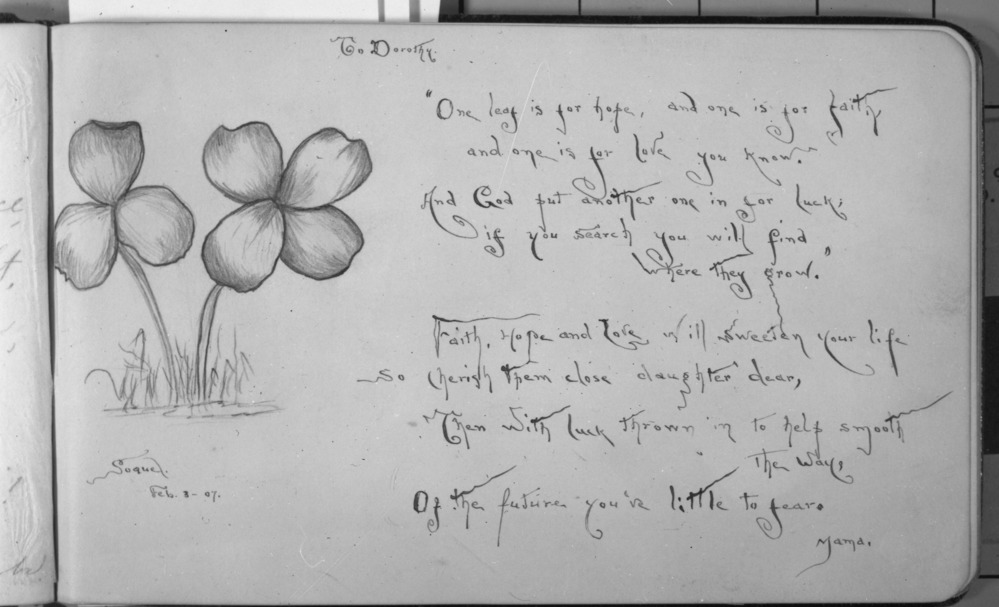 To Dorothy.
"One leaf is for hope, and one is for faith,
and one is for love you know."
And God put another one in for luck;
if you search you will find
where they grow."
Faith, Hope and Love will sweeten your life
So cherish them close daughter dear,
Then with luck thrown in to help smooth
the way,
Of the future you've little to fear.
Mama.
Soquel.
Feb. 3-07.